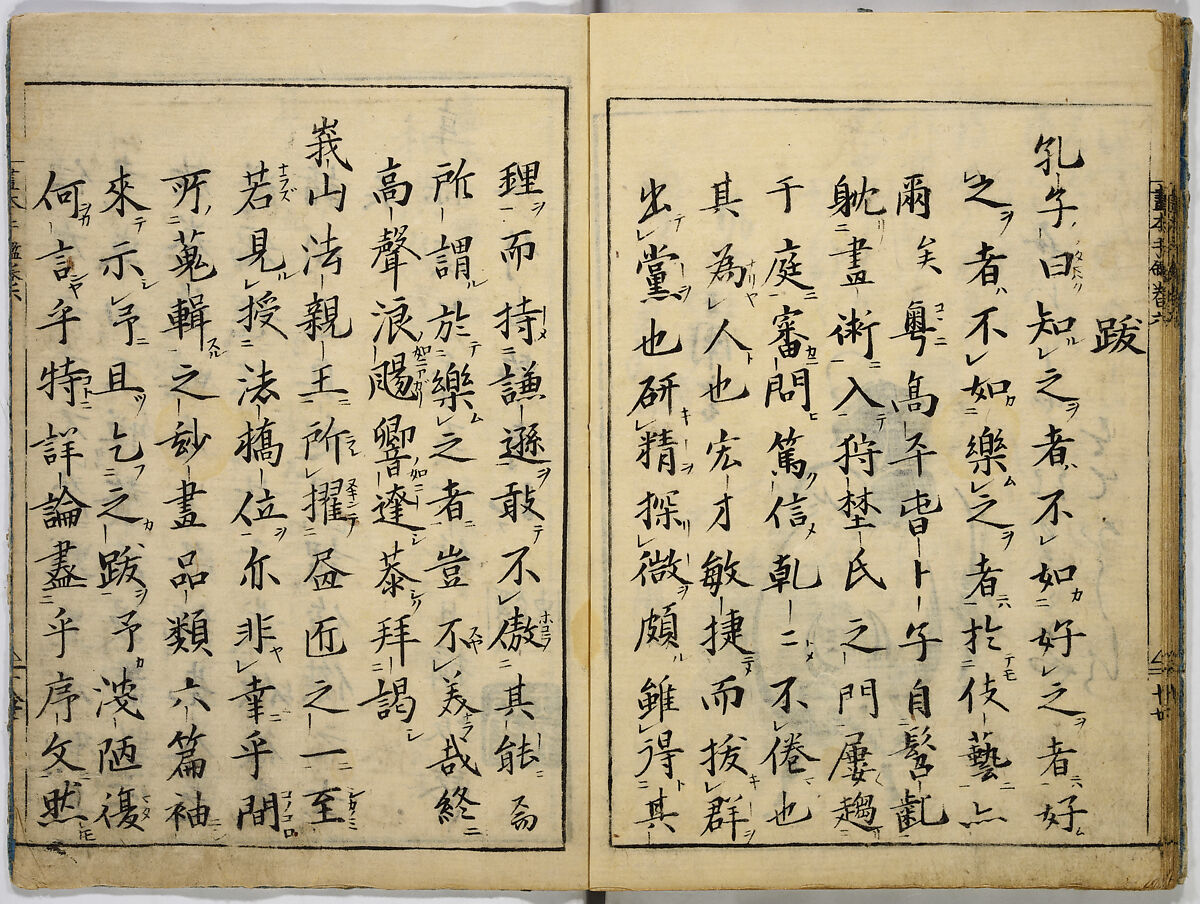 跋
孔子曰知之者不如好之者好
之者不如樂之者於伎藝亦
爾矣粤高 卜子自髫齓
耽畫術入狩埜氏之門屢趨
于庭審問篤信乾乾不倦也
其為人也宏才敏捷而抜群
出黨也研精探微頗雖得其
理而持謙遜敢不傲其能
所謂於樂之者豈不美哉終
高聲浪颺響達忝拜謁
峩山法親王所擢畫匠之一至
若見授法橋位亦非幸乎間
所蒐輯之玅畫品類六篇袖
來示予且乞之跋予淺陋復
何言乎特詳論盡乎序文然
畫本手鑑卷六